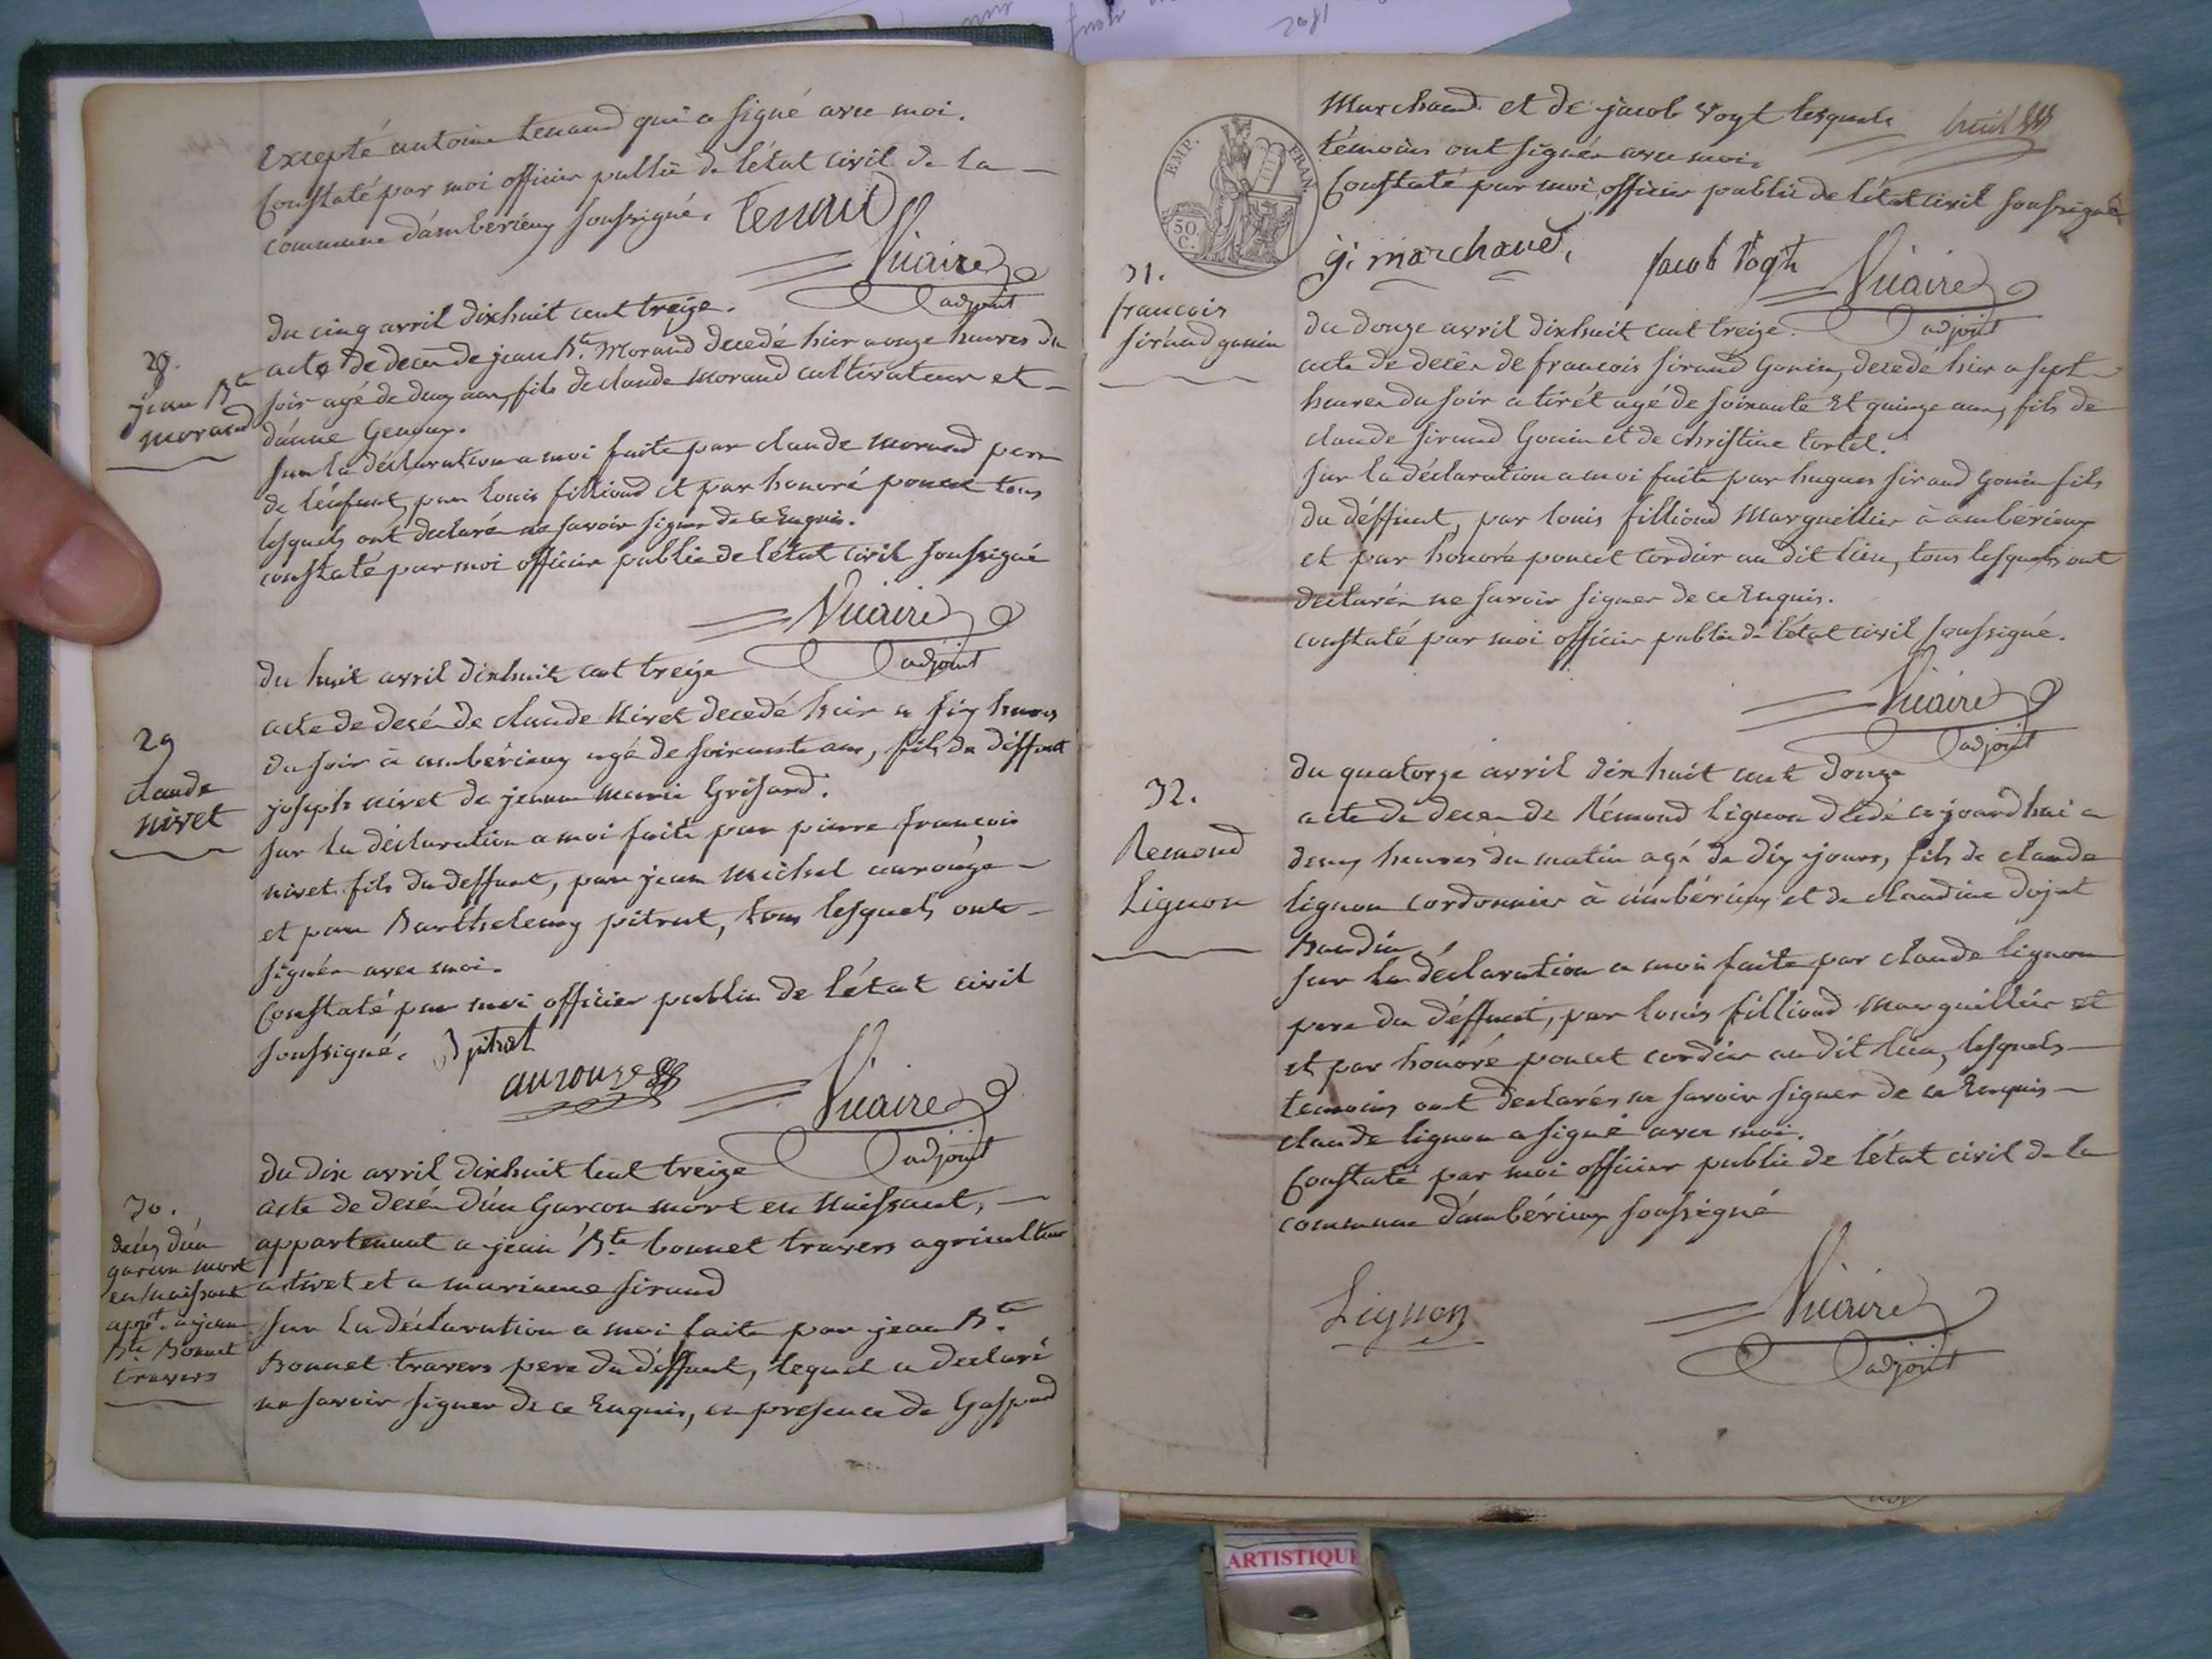 Excepté antoine tenand qui a signé avec moi.
Constaté par moi officier public de l'état civil de la
commune d'ambérieux soussigné. tenand
Vicaire
adjoint
28.
jean Bte
morand
du cinq avril dixhuit cent treize.
acte de deces de jean Bte. Morand decedé hier a onze heures du
soir agé de deux ans, fils de claude morand cultivateur et
d'anne
sur la déclaration a moi faite par claude morand pere
de l'enfant, par louis filliond et par honoré poncet tous
lesquels ont declarés ne savoir signer de ce Enquis.
constaté par moi officier public de l'état civil soussigné
Vicaire
adjoint
29
claude
nivet
du huit avril dixhuit cent treize
acte de decés de claude Nivet decedé hier a six heures
du soir à ambérieux agé de soixante ans, fils de déffunt
joseph nivet de jeanne marie Grisard.
sur la déclaration a moi faite par pierre françois
nivet fils du deffunt, par jean Michel aurouze
et par Barthelemy pitrat, tous lesquels ont
signés avec moi.
Constaté par moi officier public de l'état civil
soussigné. B pitrat
aurouze
Vicaire
adjoint
30.
decés d'un
garcon mort
en naissant
appt. a jean
Bte Bonnet
travers
du dix avril dixhuit cent treize
acte de decés d'un Garcon mort en naissant,
appartenant a jean Bte. bonnet travers agriculteur
a tiret et a marianne sirand
sur la déclaration a moi faite par jean Bte.
Bonnet travers pere du déffunt, lequel a declaré
ne savoir signer de ce Enquis, en presence de Gaspard
EMP. FRAN.
50
C.
Marchand et de jacob Vogt lesquels huit
témoins ont signés avec moi.
Constaté par moi officier public de l'état civil soussigné
g. marchand, jacob Vogt Vicaire
adjoint
31.
francois
sirand gonin
du douze avril dixhuit cent treize.
acte de decés de francois sirand Gonin, decede hier a sept
heures du soir a tirét agé de soixante et quinze ans, fils de
claude sirand Gonin et de christine tortel.
sur la déclaration a moi faite par hugues sirand Gonin fils
du déffunt, par louis filliond Marguellier à ambérieux
et par honoré poncet cordier au dit lieu, tous lesquels ont
declarés ne savoir signer de ce Enquis.
constaté par moi officier public de l'état civil soussigné.
Vicaire
adjoint
32.
Remond
Lignon
du quatorze avril dixhuit cent douze
acte de deces de Rémond lignon décedé cejourd'hui a
deux heures du matin agé de dix jours, fils de claude
lignon cordonnier à ambérieux et de claudine dojat
Baudin
sur la déclaration a moi faite par claude lignon
pere du déffunt, par louis filliond marguillier et
et par honoré poncet cordier au dit lieu, lesquels
temoins ont declarés ne savoir signer de ce Enquis
claude lignon a signé avec moi.
Constaté par moi officier public de l'état civil de la
commune d'ambérieux soussigné
Lignon
Vicaire
adjoint
ARTISTIQUE